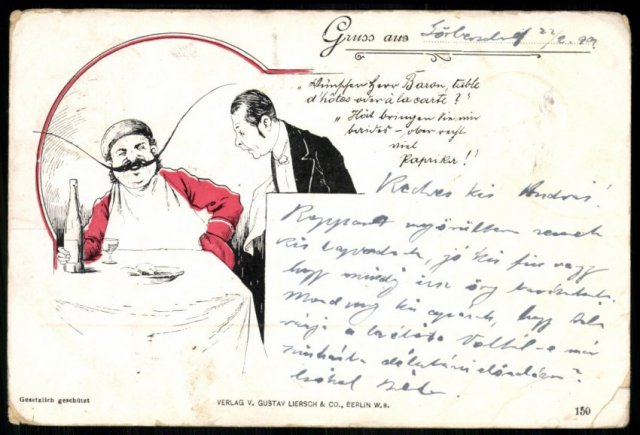 Gruss aus Görbersdorf 22/2. 99
„Wünschen Herr Baron, table
d'hôtes oder à la carte?"
„Hát bringen Sie mir
baides – ober recht
viel
Paprika!"
Kedves kis Andris!
Roppant megörültem
kis lapodnak, jó kis fiu vagy
hogy mindig
Mond meg kis apádnak, hogy
a Voltál-e már
délutáni előadáson?
Gesetzlich geschützt
VERLAG V. GUSTAV LIERSCH & CO., BERLIN W.8.
150